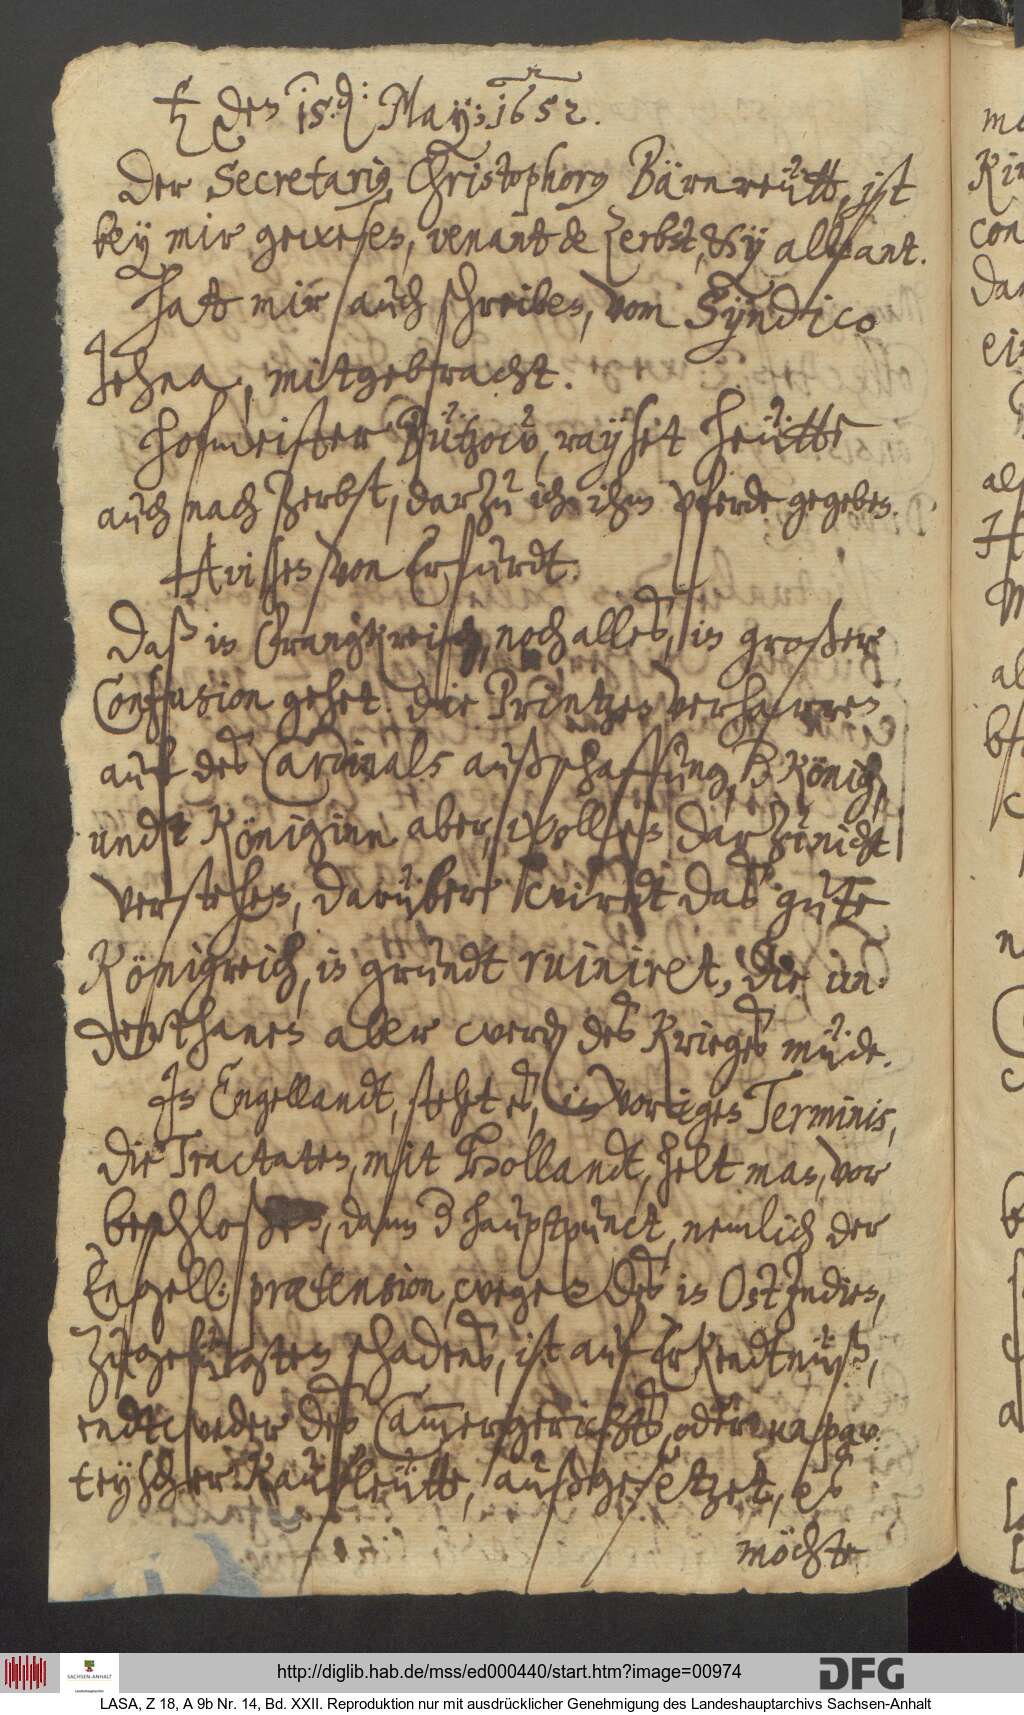 ☿ den 15.d: May: 1652.
Der Secretariꝰ, Christophorꝰ Bärnreütt, ist
bey mir gewesen, venant de Zerbst, & y allant.
Hatt mir auch schreiben, vom Syndico
Jehna, mitgebracht.
Hofmeister Bützow, rayset heütte
auch nach Zerbst, darzu ich ihm pferde gegeben.
Avisen von Erfurdt.
Daß in Frangkreich, noch alles, in großer
Confusion gehet. die Printzen verharren
auf des Cardinals außschaffung, König,
undt Königinn aber, wollen darzu nicht
verstehen, darüber wirdt das gute
Königreich, in grundt ruiniret, die un-
derthanen aber werden des Krieges müde.
In Engellandt, stehet es, in vorigen Terminis,
die Tractaten, mit Hollandt, helt man, vor
beschloßen, dann 3 hauptpunct, nemlich der
Engell: prætension, wegen des in OstJndien,
zugefügten schadens, ist auf Erkendtnüß,
endtweder des Cammergerichts, oder unpar-
teyischer Kaufleütte, außgesetzet, es
möchte
http://diglib.hab.de/mss/ed000440/start.htm?image=00974
DFG
SACHSEN-ANHALT
LASA, Z 18, A 9b Nr. 14, Bd. XXII. Reproduktion nur mit ausdrücklicher Genehmigung des Landeshauptarchivs Sachsen-Anhalt